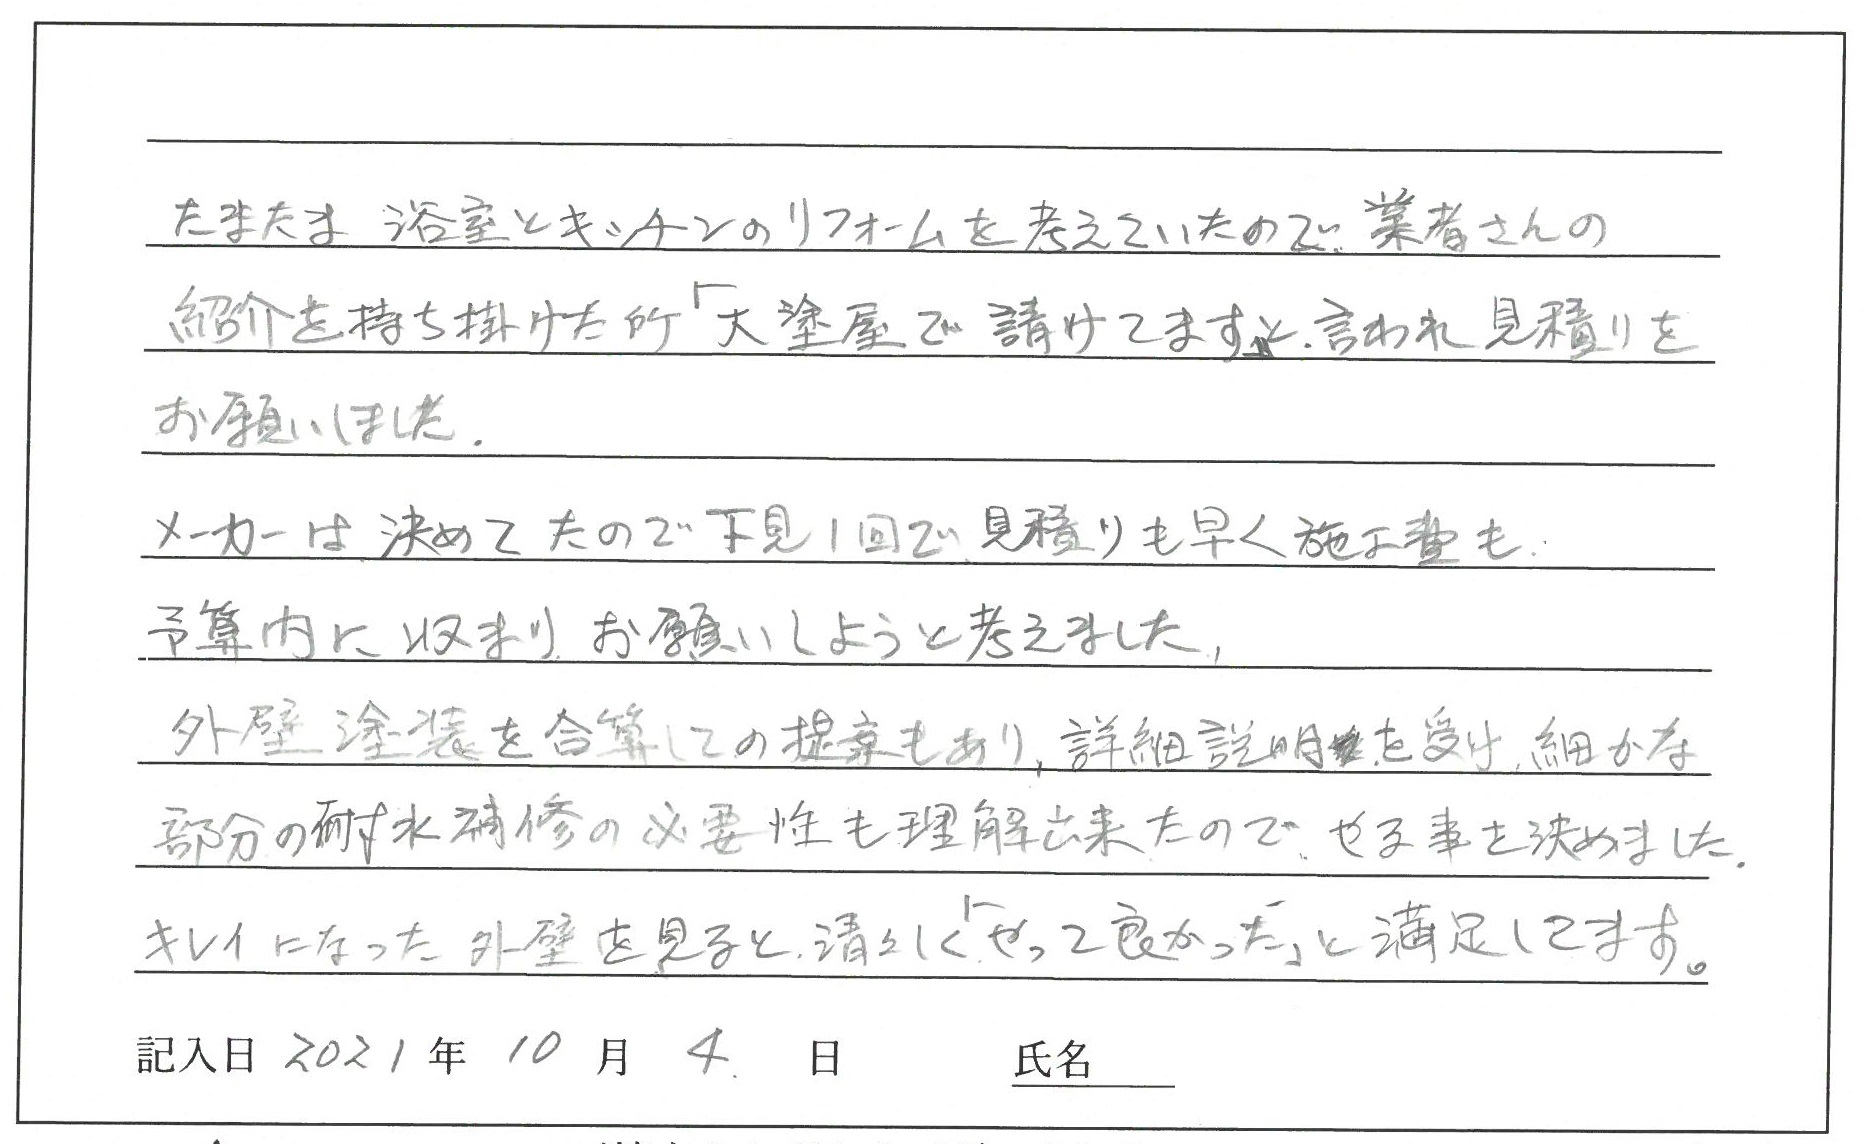 たまたま 浴室とキッチンのリフォームを考えていたので、業者さんの
紹介を持ち掛けた所「大塗屋で請けてます」と、言われ見積りを
お願いしました。
メーカーは決めてたので下見1回で、見積りも早く施工費も
予算内に収まり、お願いしようと考えました。
外壁塗装を合算しての提案もあり、詳細説明を受け、細かな
部分の耐水補修の必要性も理解出来たので、やる事を決めました。
キレイになった外壁を見ると、清々しく「やって良かった」と満足してます。
記入日 2021年 10月 4日 氏名